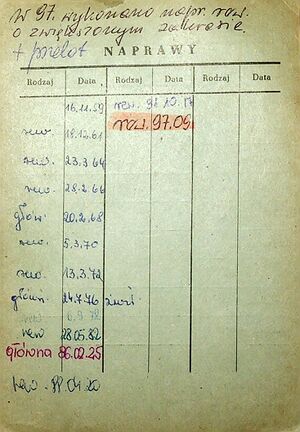 W 97. wykonano napr. rew.
o zwiększonym zakresie.
+ 
NAPRAWY
Rodzaj Data Rodzaj Data
16.11.59 rew. 92.10.
rew. 18.12.61 rew. 97.09
rew. 23.3.64
rew. 28.2.66
główn. 20.2.68
rew. 5.3.70
rew. 13.3.72
główn. 24.7.76
rew. 6.9.78
rew 28.05.82
główna 86.02.25
rew. 88.01.20